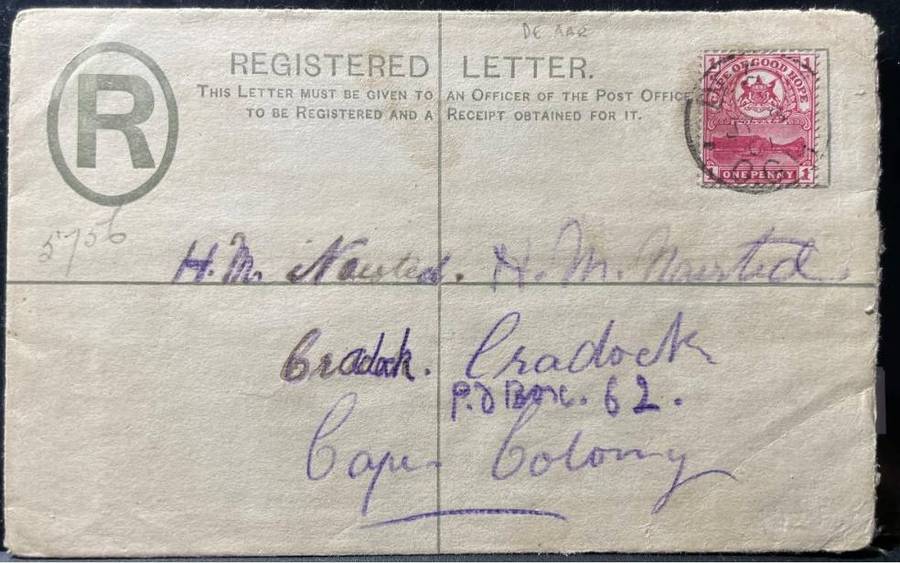 DE AAR
R
REGISTERED LETTER.
THIS LETTER MUST BE GIVEN TO AN OFFICER OF THE POST OFFICE
TO BE REGISTERED AND A RECEIPT OBTAINED FOR IT.
CAPE OF GOOD HOPE
POSTAGE
1 ONE PENNY 1
5756
H. M. H. M.
Cradock. Cradock
P.O Box. 62.
Cape Colony